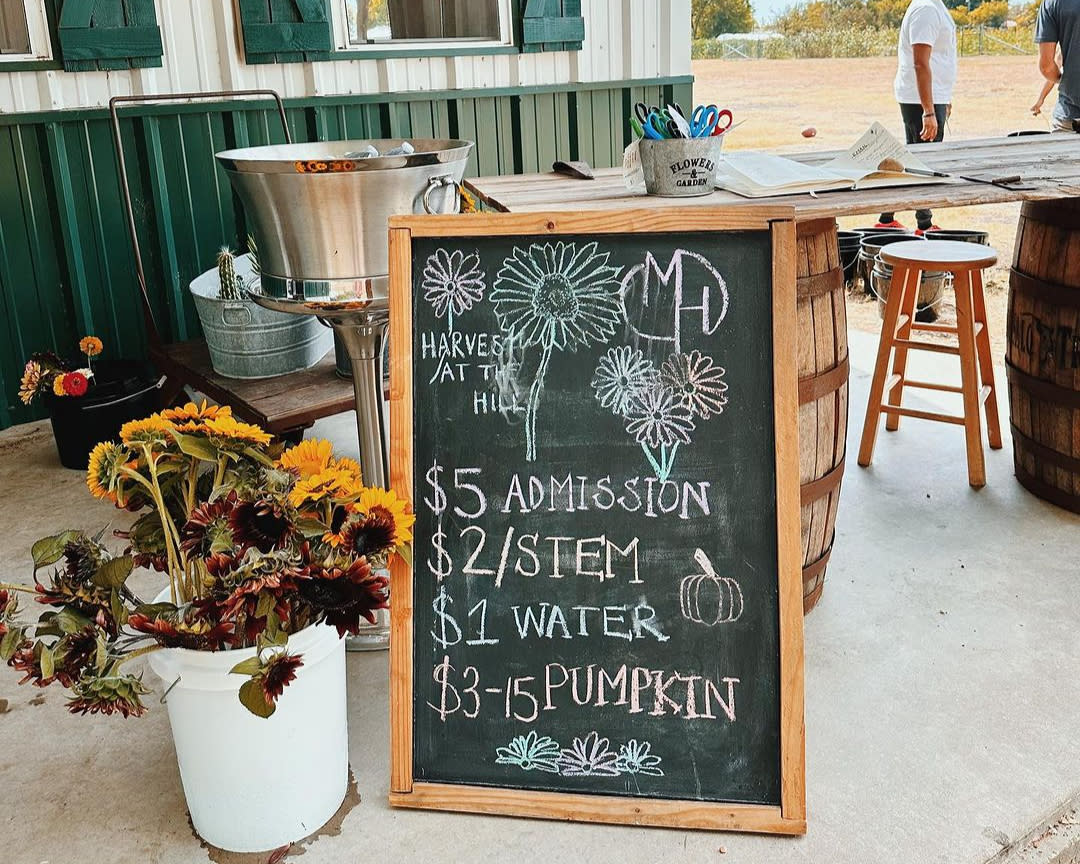 FLOWERS
&
GARDEN
MH
HARVEST
AT THE
HILL
$5 ADMISSION
$2/STEM
$1 WATER
$3-15 PUMPKIN